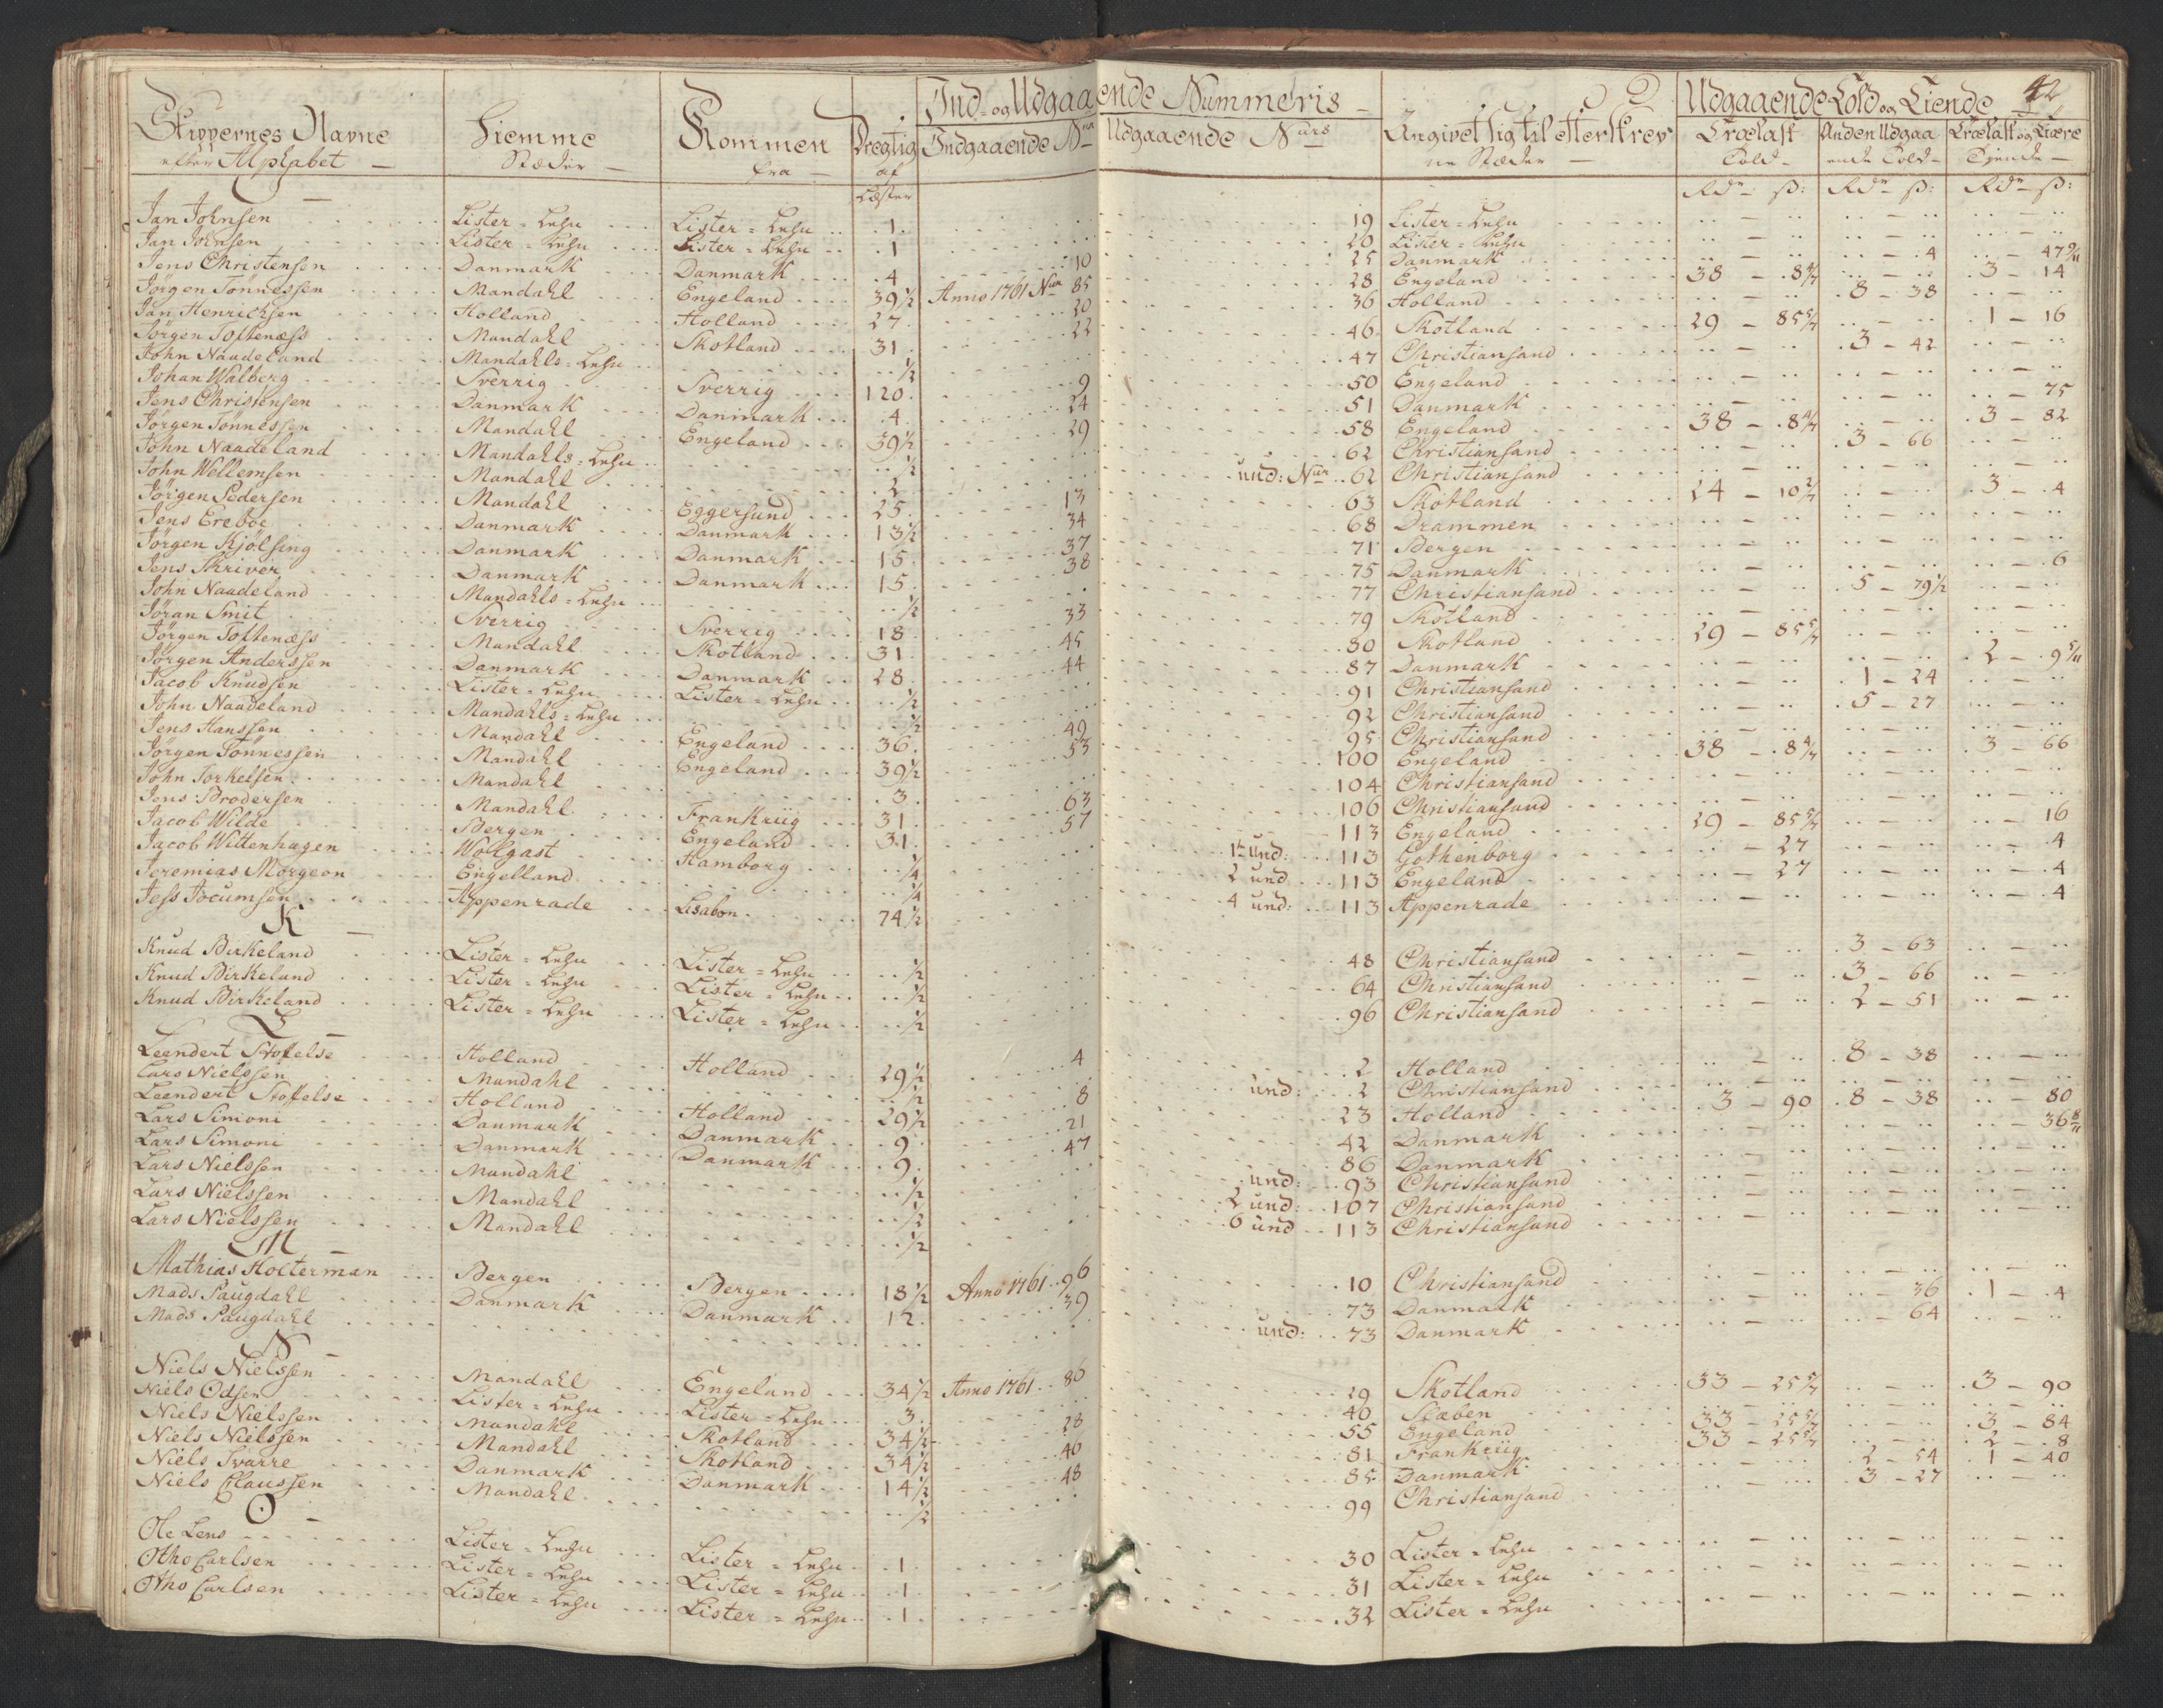 42
Skippernes Navne efter Alphabet — | Hiemme Stæder — | Kommen fra — | Drægtig af Læster | Ind- og Udgaaende Nummeris — | Indgaaende Nrr | Udgaaende Nurs | Angivet sig til efterskrevne Stæder — | Udgaaende Told og Tiende | Trælast Told — | Anden Udgaaende Told — | Trælast og Tiære Tiende —
Rdr ß: | Rdr ß: | Rdr ß:
I
Jan Johnsen | Lister = Lehn | Lister = Lehn | 1 | | 19 | Lister = Lehn
Jan Johnsen | Lister = Lehn | Lister = Lehn | 1 | | 20 | Lister = Lehn
Jens Christensen | Danmark | Danmark | 4 | 10 | 25 | Danmark | | 4 | 47 9/11
Jörgen Tönnessen | Mandahl | Engeland | 39 1/2 | Anno 1761 Nur 85 | 28 | Engeland | 38 - 8 4/7 | | 3 - 14
Jan Henrichsen | Holland | Holland | 27 | 20 | 36 | Holland | | 8 - 38
Jörgen Toftenæss | Mandahl | Skotland | 31 | 22 | 46 | Skotland | 29 - 85 5/7 | | 1 - 16
John Naadeland | Mandahls = Lehn | | 1/2 | | 47 | Christiansand | | 3 - 42
Johan Walberg | Sverrig | Sverrig | 120 | 9 | 50 | Engeland
Jens Christensen | Danmark | Danmark | 4 | 24 | 51 | Danmark | | | 75
Jörgen Tönnessen | Mandahl | Engeland | 39 1/2 | 29 | 58 | Engeland | 38 - 8 4/7 | | 3 - 82
John Naadeland | Mandahls = Lehn | | 1/2 | | 62 | Christiansand | | 3 - 66
John Wellemsen | Mandahl | | 2 | | und: Nur 62 | Christiansand
Jörgen Pedersen | Mandahl | Eggersund | 25 | 13 | 63 | Skotland | 24 - 10 2/7 | | 3 - 4
Jens Ereboe | Danmark | Danmark | 13 1/2 | 34 | 68 | Drammen
Jörgen Kjölsing | Danmark | Danmark | 15 | 37 | 71 | Bergen
Jens Skriver | Danmark | Danmark | 15 | 38 | 75 | Danmark | | | 6
John Naadeland | Mandahls = Lehn | | 1/2 | | 77 | Christiansand | | 5 - 79 1/2
Jöran Smit | Sverrig | Sverrig | 18 | 33 | 79 | Skotland
Jörgen Toftenæss | Mandahl | Skotland | 31 | 45 | 80 | Skotland | 29 - 85 5/7
Jörgen Anderssen | Danmark | Danmark | 28 | 44 | 87 | Danmark | | | 2 - 9 5/11
Jacob Knudsen | Lister = Lehn | Lister = Lehn | 1/2 | | 91 | Christiansand | | 1 - 24
John Naadeland | Mandahls = Lehn | | 1/2 | | 92 | Christiansand | | 5 - 27
Jens Hanssen | Mandahl | Engeland | 36 | 49 | 95 | Christiansand
Jörgen Tönnessen | Mandahl | Engeland | 39 1/2 | 53 | 100 | Engeland | 38 - 8 4/7 | | 3 - 66
John Torkelsen | Mandahl | | 3 | | 104 | Christiansand
Jens Brodersen | Mandahl | Frankriig | 31 | 63 | 106 | Christiansand
Jacob Wilde | Bergen | Engeland | 31 | 57 | 113 | Engeland | 29 - 85 5/7 | | 16
Jacob Wittenhagen | Wollgast | Hamborg | 1/4 | | 1te und: 113 | Gothenborg | 27 | | 4
Jeremias Morgeon | Engelland | | 1/4 | | 2 und 113 | Engeland | 27 | | 4
Jess Jocumsen | Appenrade | Lisabon | 74 1/2 | | 4 und: 113 | Appenrade | | | 4
K
Knud Birkeland | Lister = Lehn | Lister = Lehn | 1/2 | | 48 | Christiansand | | 3 - 63
Knud Birkeland | Lister = Lehn | Lister = Lehn | 1/2 | | 64 | Christiansand | | 3 - 66
Knud Birkeland | Lister = Lehn | Lister = Lehn | 1/2 | | 96 | Christiansand | | 2 - 51
L
Leendert Stoffelse | Holland | Holland | 29 1/2 | 4 | 2 | Holland | | 8 - 38
Lars Nielssen | Mandahl | | 1/2 | | und: 2 | Christiansand
Leendert Stoffelse | Holland | Holland | 29 1/2 | 8 | 23 | Holland | 3 - 90 | 8 - 38 | 80
Lars Simoni | Danmark | Danmark | 9 | 21 | 42 | Danmark | | | 36 8/11
Lars Simoni | Danmark | Danmark | 9 | 47 | 86 | Danmark
Lars Nielssen | Mandahl | | 1/2 | | und: 93 | Christiansand
Lars Nielssen | Mandahl | | 1/2 | | 2 und: 107 | Christiansand
Lars Nielssen | Mandahl | | 1/2 | | 6 und 113 | Christiansand
M
Mathias Holterman | Bergen | Bergen | 18 1/2 | Anno 1761 96 | 10 | Christiansand
Mads Paugdahl | Danmark | Danmark | 12 | 39 | 73 | Danmark | | 36 | 1 - 4
Mads Paugdahl | | | | | und: 73 | Danmark | | 64
N
Niels Nielssen | Mandahl | Engeland | 34 1/2 | Anno 1761 86 | 29 | Skotland | 33 - 25 5/7 | | 3 - 90
Niels Odsen | Lister = Lehn | Lister = Lehn | 3 | | 40 | Staben
Niels Nielssen | Mandahl | Skotland | 34 1/2 | 28 | 55 | Engeland | 33 - 25 5/7 | | 3 - 84
Niels Nielssen | Mandahl | Skotland | 34 1/2 | 46 | 81 | Frankriig | 33 - 25 5/7 | | 2 - 8
Niels Svarre | Danmark | Danmark | 14 1/2 | 48 | 85 | Danmark | | 2 - 54 | 1 - 40
Niels Claussen | Mandahl | | 1/2 | | 99 | Christiansand | | 3 - 27
O
Ole Lens | Lister = Lehn | Lister = Lehn | 1 | | 30 | Lister = Lehn
Otho Carlsen | Lister = Lehn | Lister = Lehn | 1 | | 31 | Lister = Lehn
Otho Carlsen | Lister = Lehn | Lister = Lehn | 1 | | 32 | Lister = Lehn